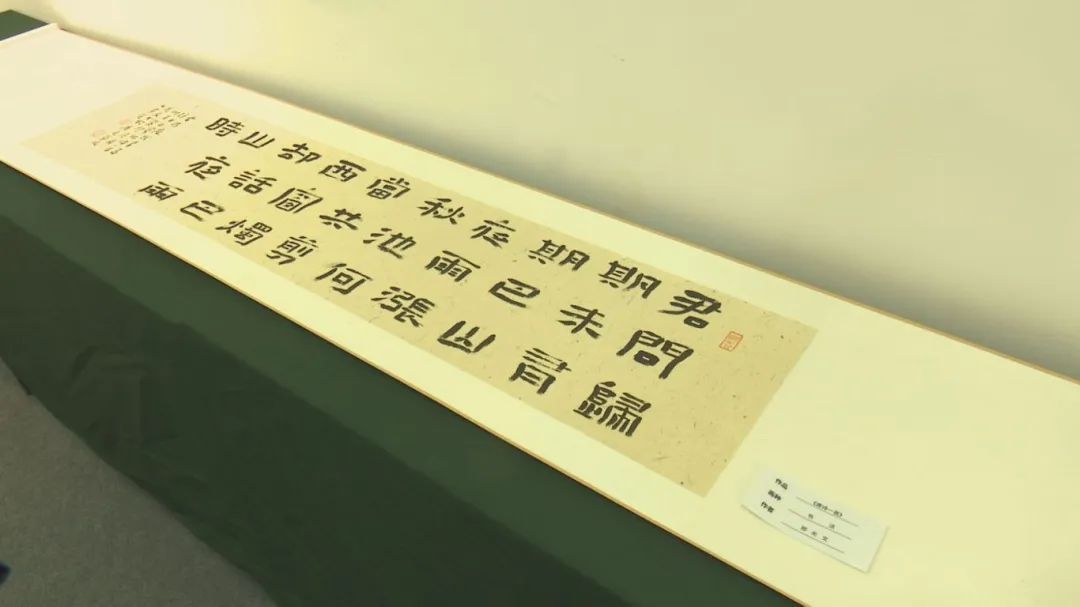 君問歸
期未有
期巴山
夜雨漲
秋池何
當共剪
西窗燭
却話巴
山夜雨
時
作品 《唐诗一首》
画种 书法
作者